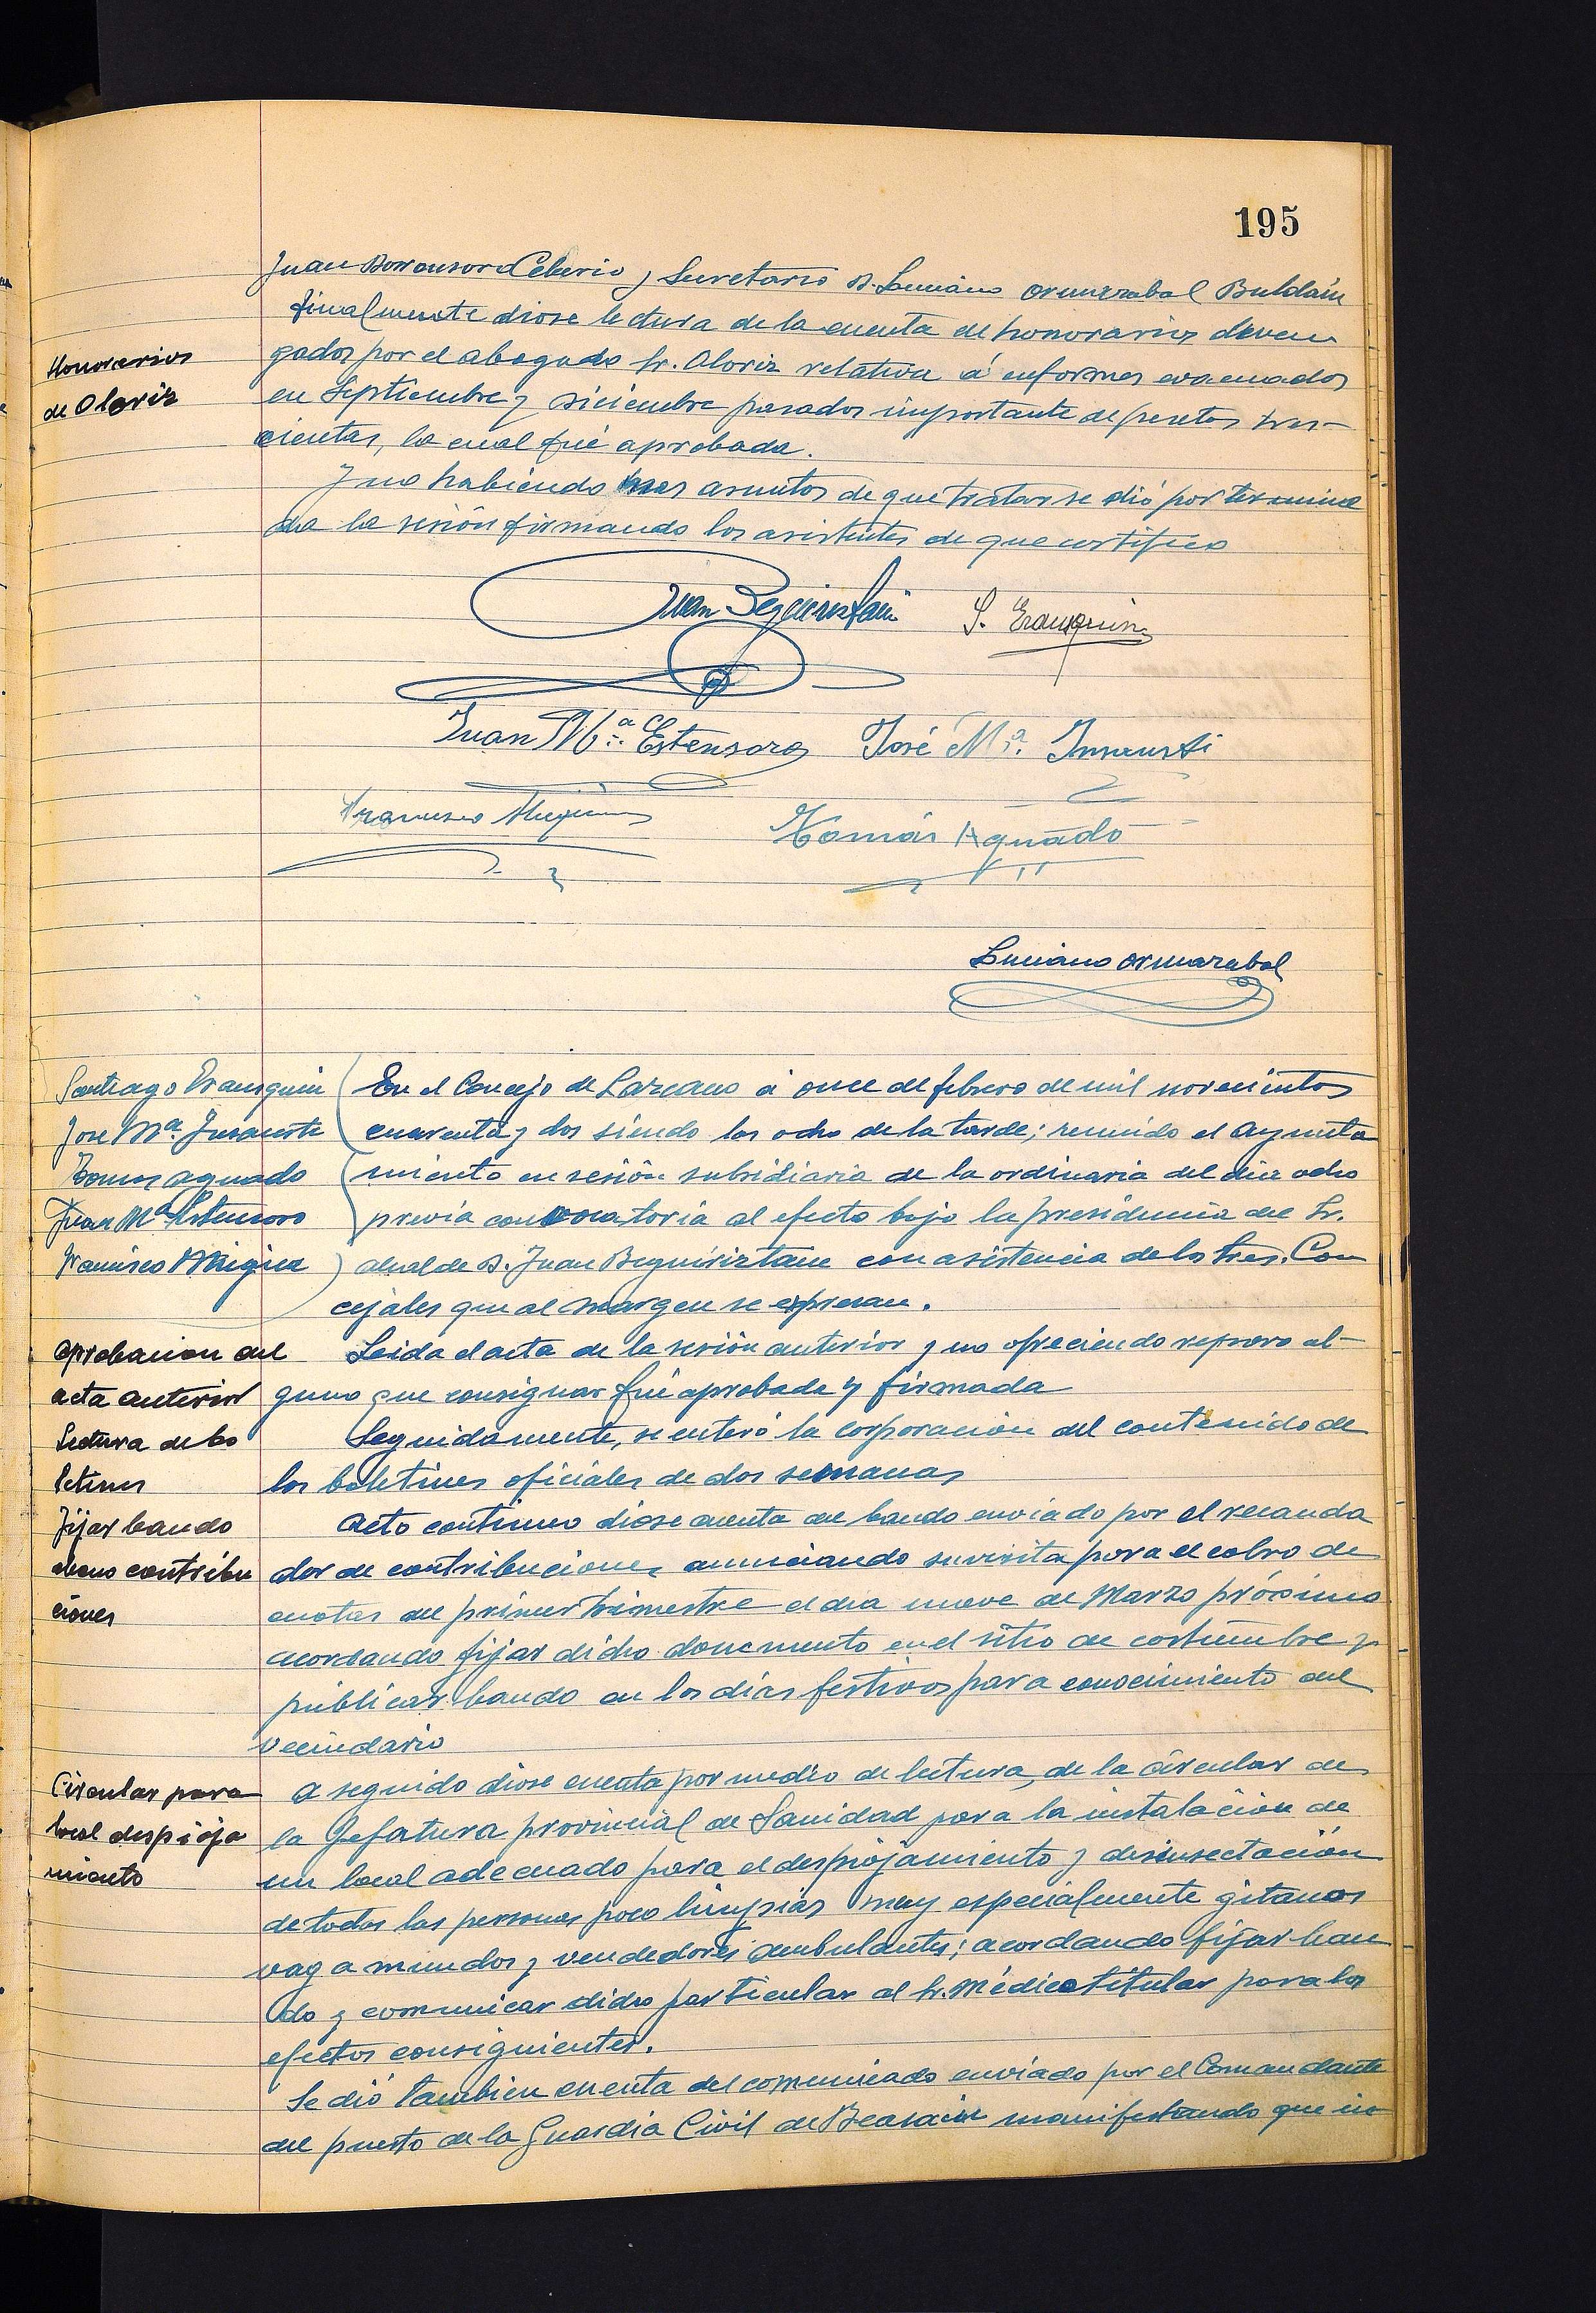 195
Juan Celerio y Secretario D. Luciano Ormazabal Buldain
finalmente diose lectura de la cuenta de honorarios deven
Honorarios
de Oloriz
gados por el abogado Sr. Oloriz relativa á enformes evacuados
en Septiembre y Diciembre pasados importante de pesetas tres-
cientas, la cual fué aprobada.
Y no habiendo mas asuntos de que tratar se dió por termina
da la sesión firmando los asistentes de que certifico
Juan Beguiristain S. Eranzquin
Juan Mª Estensoro José Mª. Insausti
Francisco Mugica Tomás Aguado
Luciano Ormazabal
Santiago Eransquin
Jose Mª. Insausti
Tomas aguado
Juan Mª Estensoro
Francisco Mugica
En el Concejo de Lazcano á once de febrero de mil novecientos
cuarenta y dos siendo las ocho de la tarde; reunido el Ayunta
miento en sesión subsidiaria de la ordinaria del dia ocho
previa convocatoria al efecto bajo la presidencia del Sr.
alcalde D. Juan Beguiristain con asistencia de los Sres. Con
cejales que al margen se expresan.
aprobacion del
acta anterior
Leida el acta de la sesión anterior y no ofreciendo reparo al-
guno que consignar fué aprobada y firmada
Lectura de bo
letines
Seguidamente, se enteró la corporación del contenido de
los boletines oficiales de dos semanas
Fijar bando
abono contribu
ciones
Acto continuo diose cuenta del bando enviado por el recauda
dor de contribuciones anunciando su visita para el cobro de
cuotas del primer trimestre el dia nueve de Marzo próximo
acordando fijar dicho documento en el sitio de costumbre y
publicar bando en los dias festivos para conocimiento del
vecindario
Circular para
local despioja
miento
A seguido diose cuenta por medio de lectura, de la circular de
la Gefatura provincial de Sanidad para la instalación de
un local adecuado para el despiojamiento y desinsectación
de todas las personas poco limpias muy especialmente gitanos
vagamundos y vendedores ambulantes; acordando fijar ban
do y comunicar dicho particular al Sr. Médico titular para los
efectos consiguientes.
Se dió tambien cuenta del comunicado enviado por el Comandante
del puesto de la Guardia Civil de Beasain manifestando que in